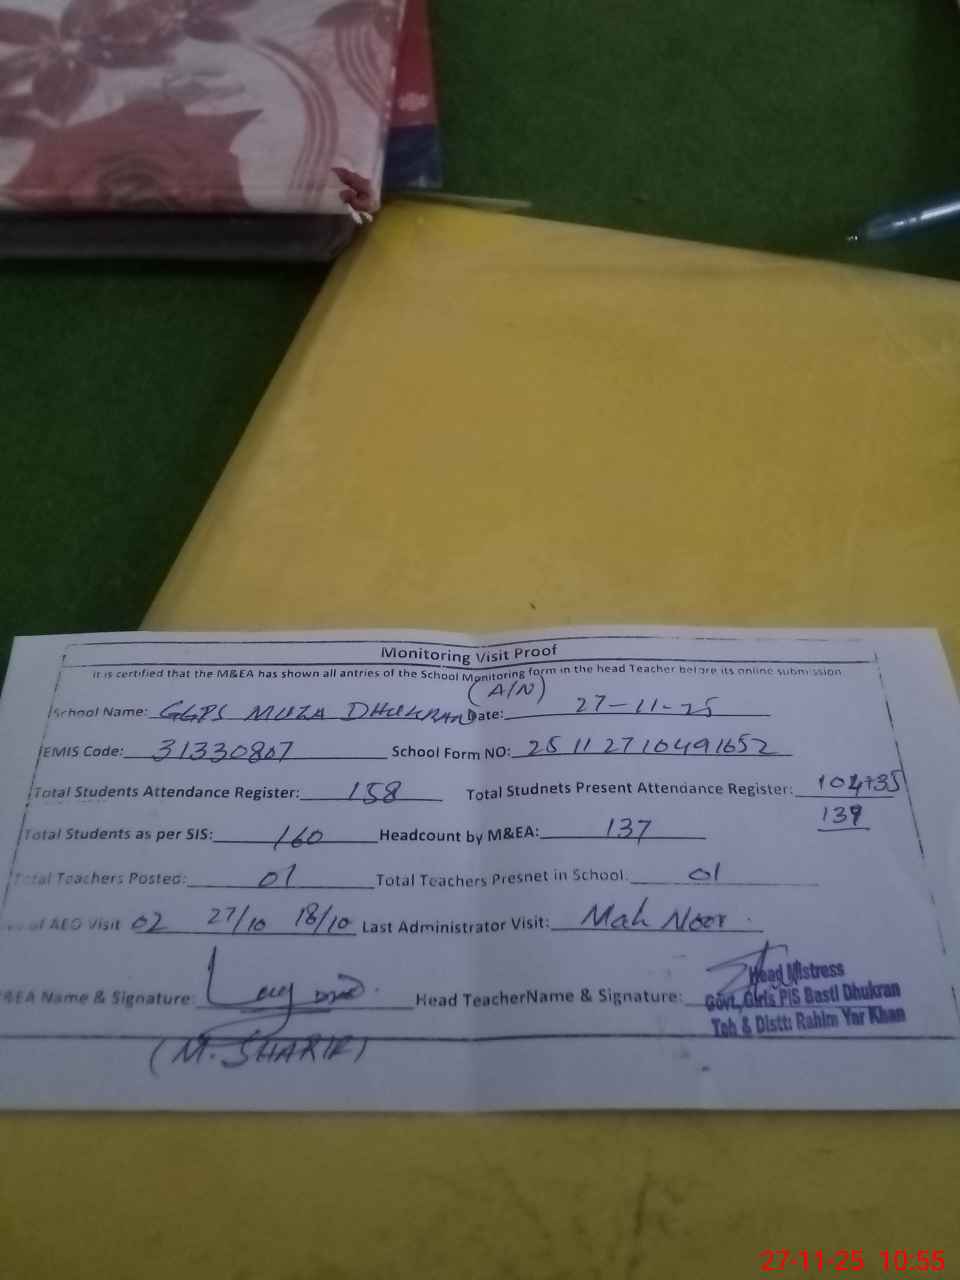 Monitoring Visit Proof
it is certified that the M&EA has shown all antries of the School Monitoring form in the head Teacher before its online submission
(A/N)
School Name: GGPS MUZA DHUKRAN Date: 27-11-25
EMIS Code: 31330807 School Form NO: 25112710491652
Total Students Attendance Register: 158 Total Studnets Present Attendance Register: 104+35
139
Total Students as per SIS: 160 Headcount by M&EA: 137
Total Teachers Posted: 01 Total Teachers Presnet in School: 01
of AEO Visit 02 27/10 18/10 Last Administrator Visit: Mah Noor
M&EA Name & Signature: Head TeacherName & Signature:
Head Mistress
Govt. Girls P/S Basti Dhukran
Teh & Distt: Rahim Yar Khan
(M. SHARIF)
27-11-25 10:55